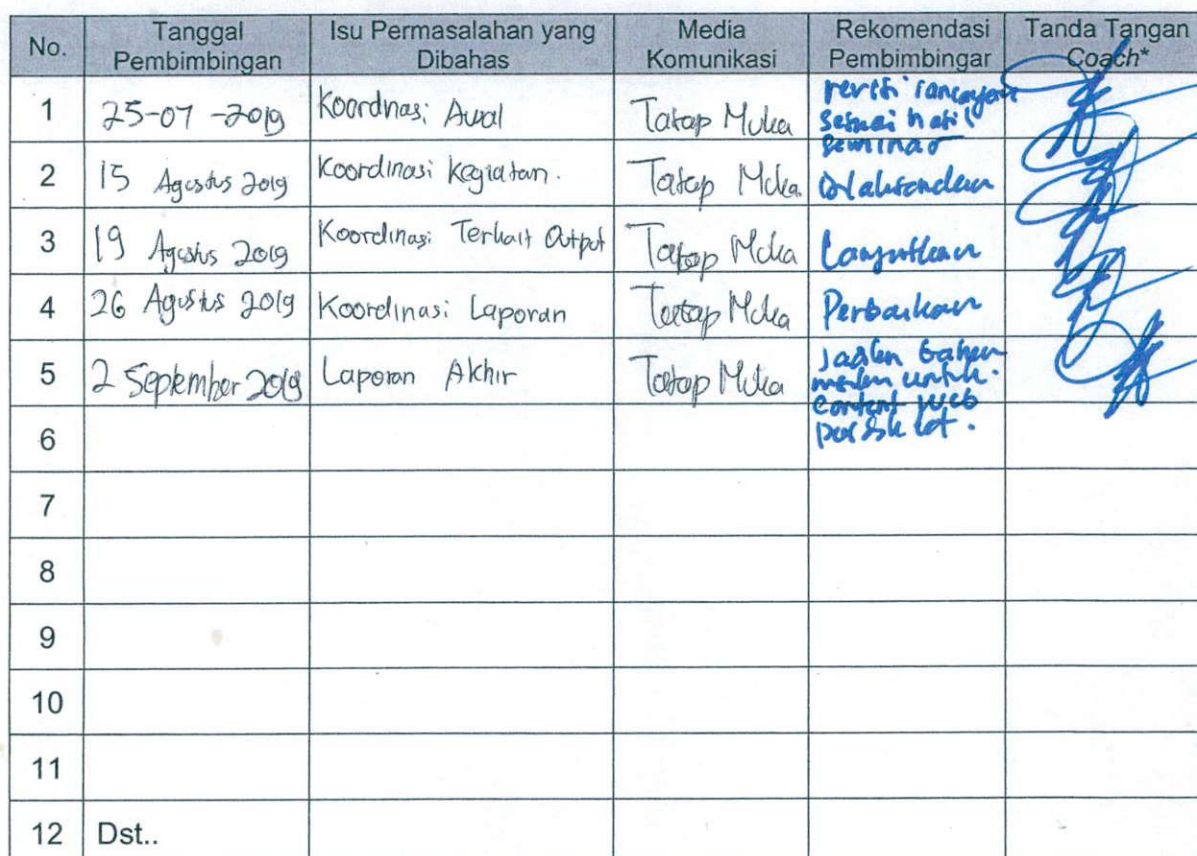 No. Tanggal Pembimbingan Isu Permasalahan yang Dibahas Media Komunikasi Rekomendasi Pembimbingar Tanda Tangan Coach*
1 25-07-2019 Koordnasi Awal Tatap Muka revisi rancangan sesuai hasil seminar
2 15 Agustus 2019 Koordinasi Kegiatan. Tatap Muka Dilaksanakan
3 19 Agustus 2019 Koordinasi Terkait Output Tatap Muka Lanjutkan
4 26 Agustus 2019 Koordinasi Laporan Tatap Muka Perbaikan
5 2 September 2019 Laporan Akhir Tatap Muka untuk content web
6
7
8
9
10
11
12 Dst..